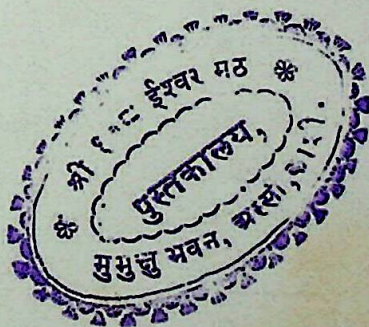 श्री १०८ ईश्वर मठ
पुस्तकालय,
मुमुक्षु भवन, अस्सी,